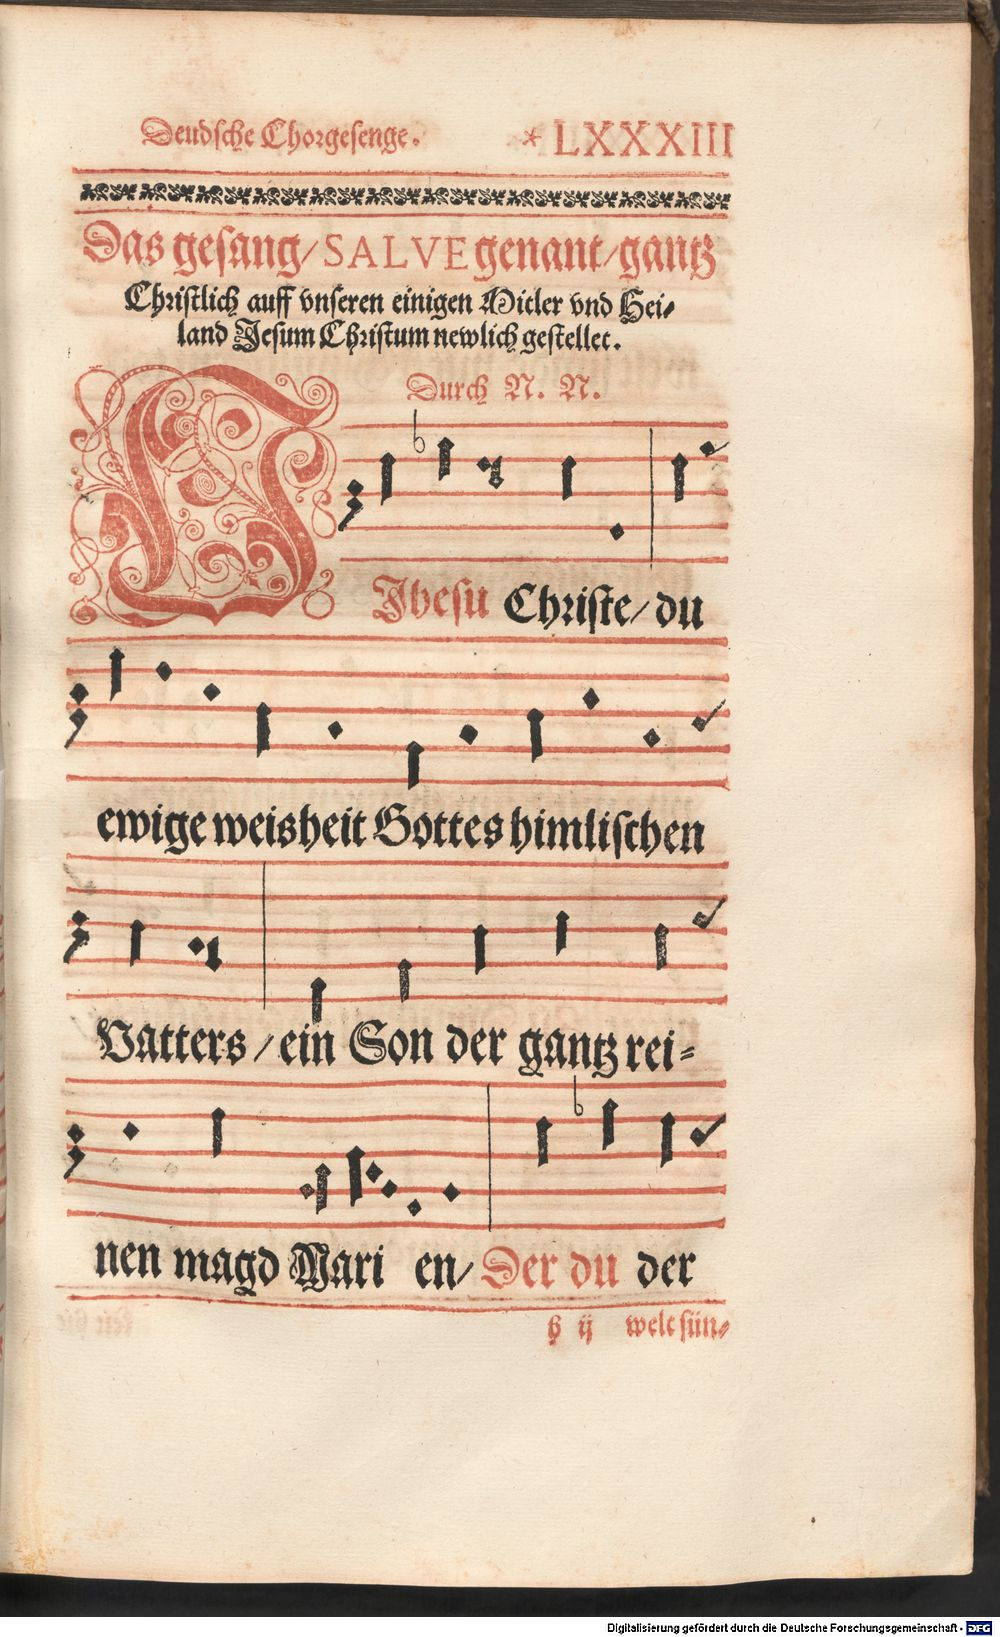 Deudsche Chorgesenge. * LXXXIII
Das gesang/ SALVE genant/ gantz
Christlich auff vnseren einigen Mitler vnd Hei-
land Jesum Christum newlich gestellet.
Durch N. N.
O Jhesu Christe/ du
ewige weisheit Gottes himlischen
Vatters/ ein Son der gantz rei-
nen magd Mari en/ Der du der
h ij welt sün-
Digitalisierung gefördert durch die Deutsche Forschungsgemeinschaft - DFG